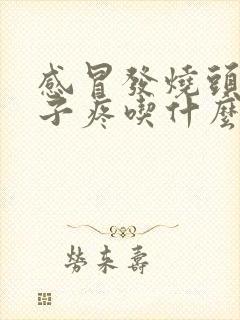 感冒發燒頭
子疼喫什麼
勞来壽